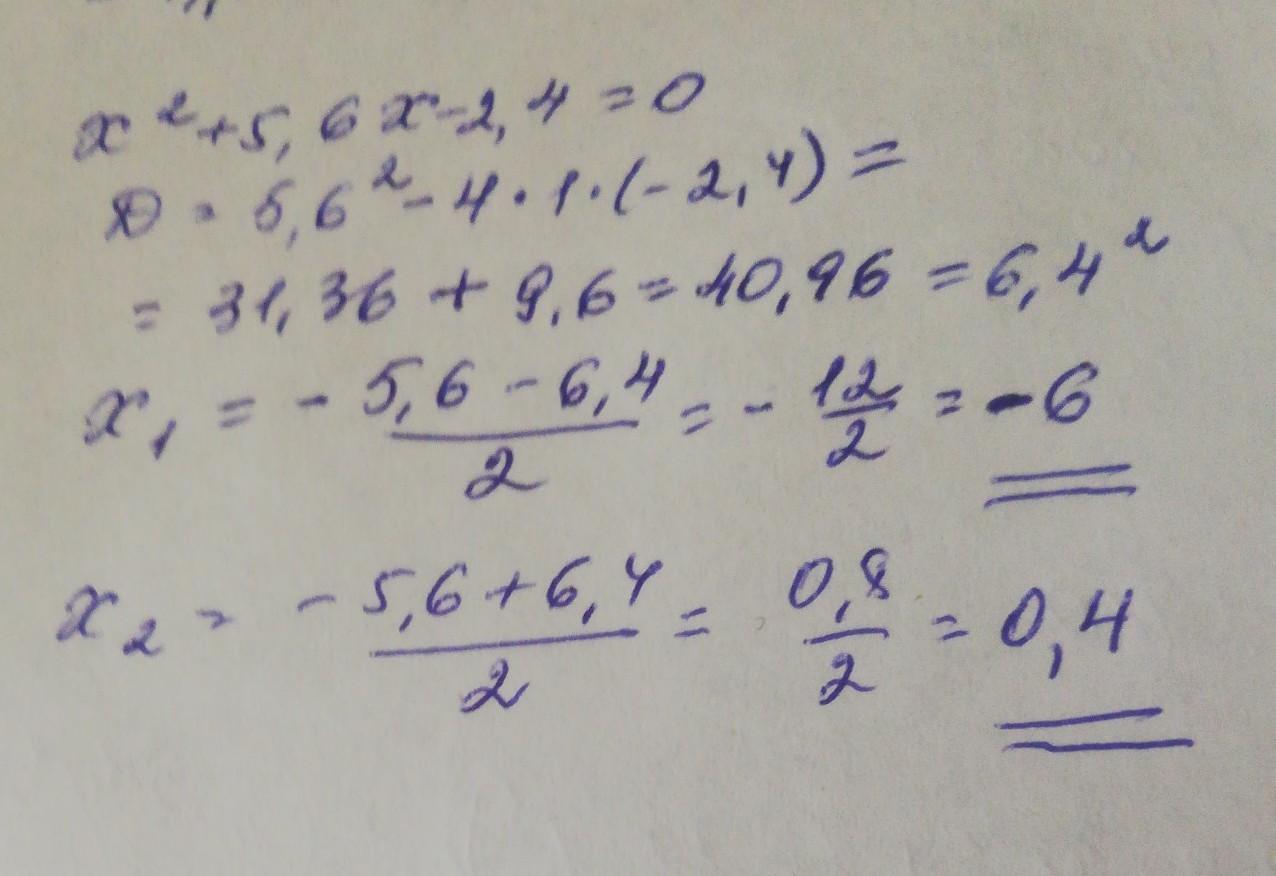 x²+5,6x-2,4=0
D=5,6²-4·1·(-2,4)=
=31,36+9,6=40,96=6,4²
x₁=-5,6-6,4/2=-12/2=-6
x₂=-5,6+6,4/2=0,8/2=0,4